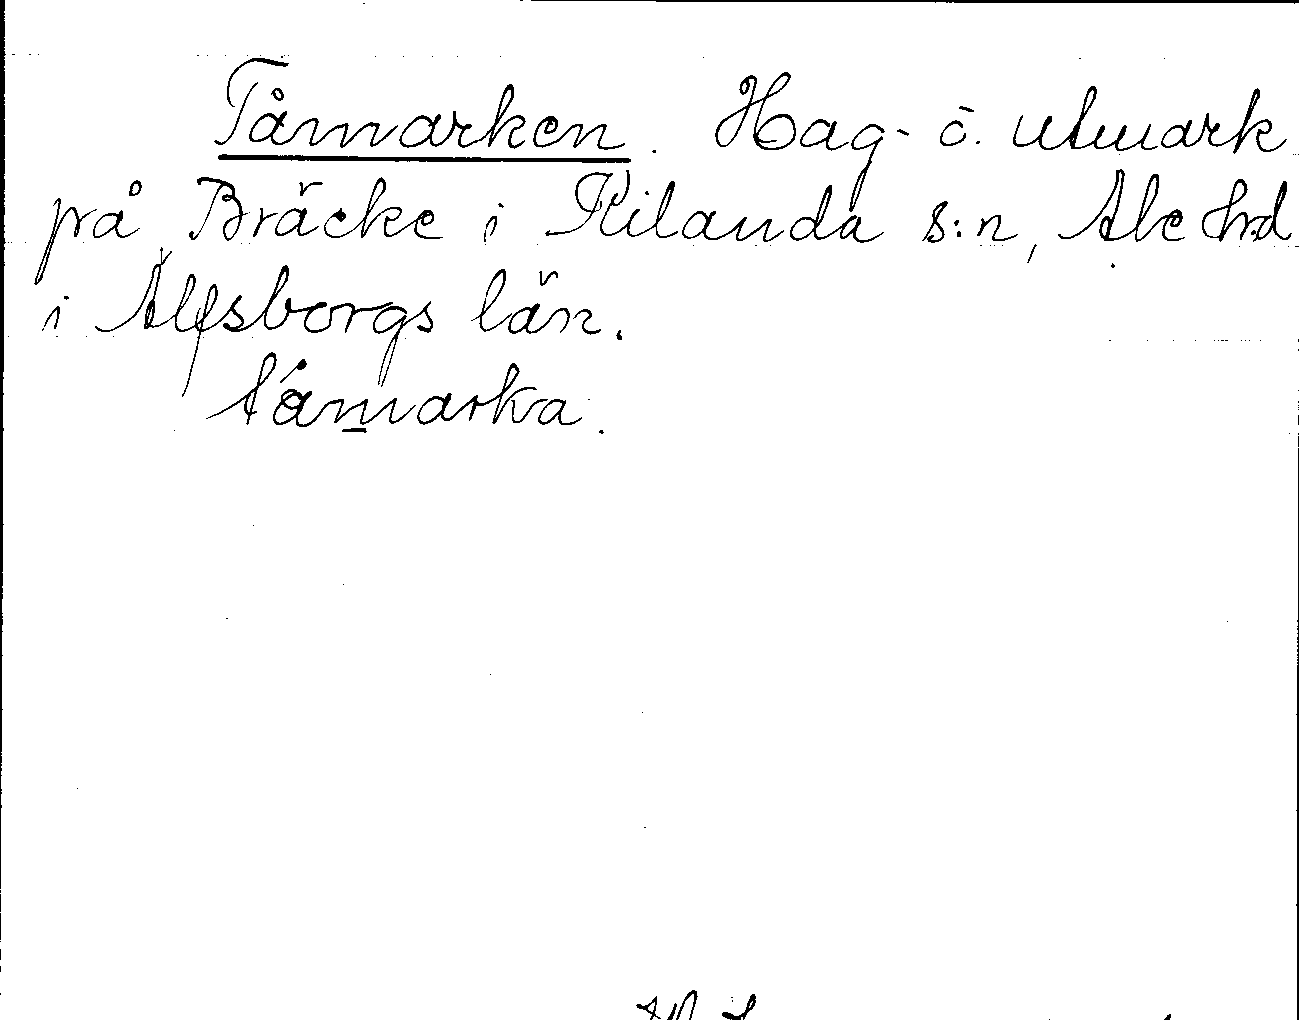 Tåmarken. Hag- o. utmark
på Bräcke i Kilanda s:n, Ale hd
i Älfsborgs län.
tǻmarka.